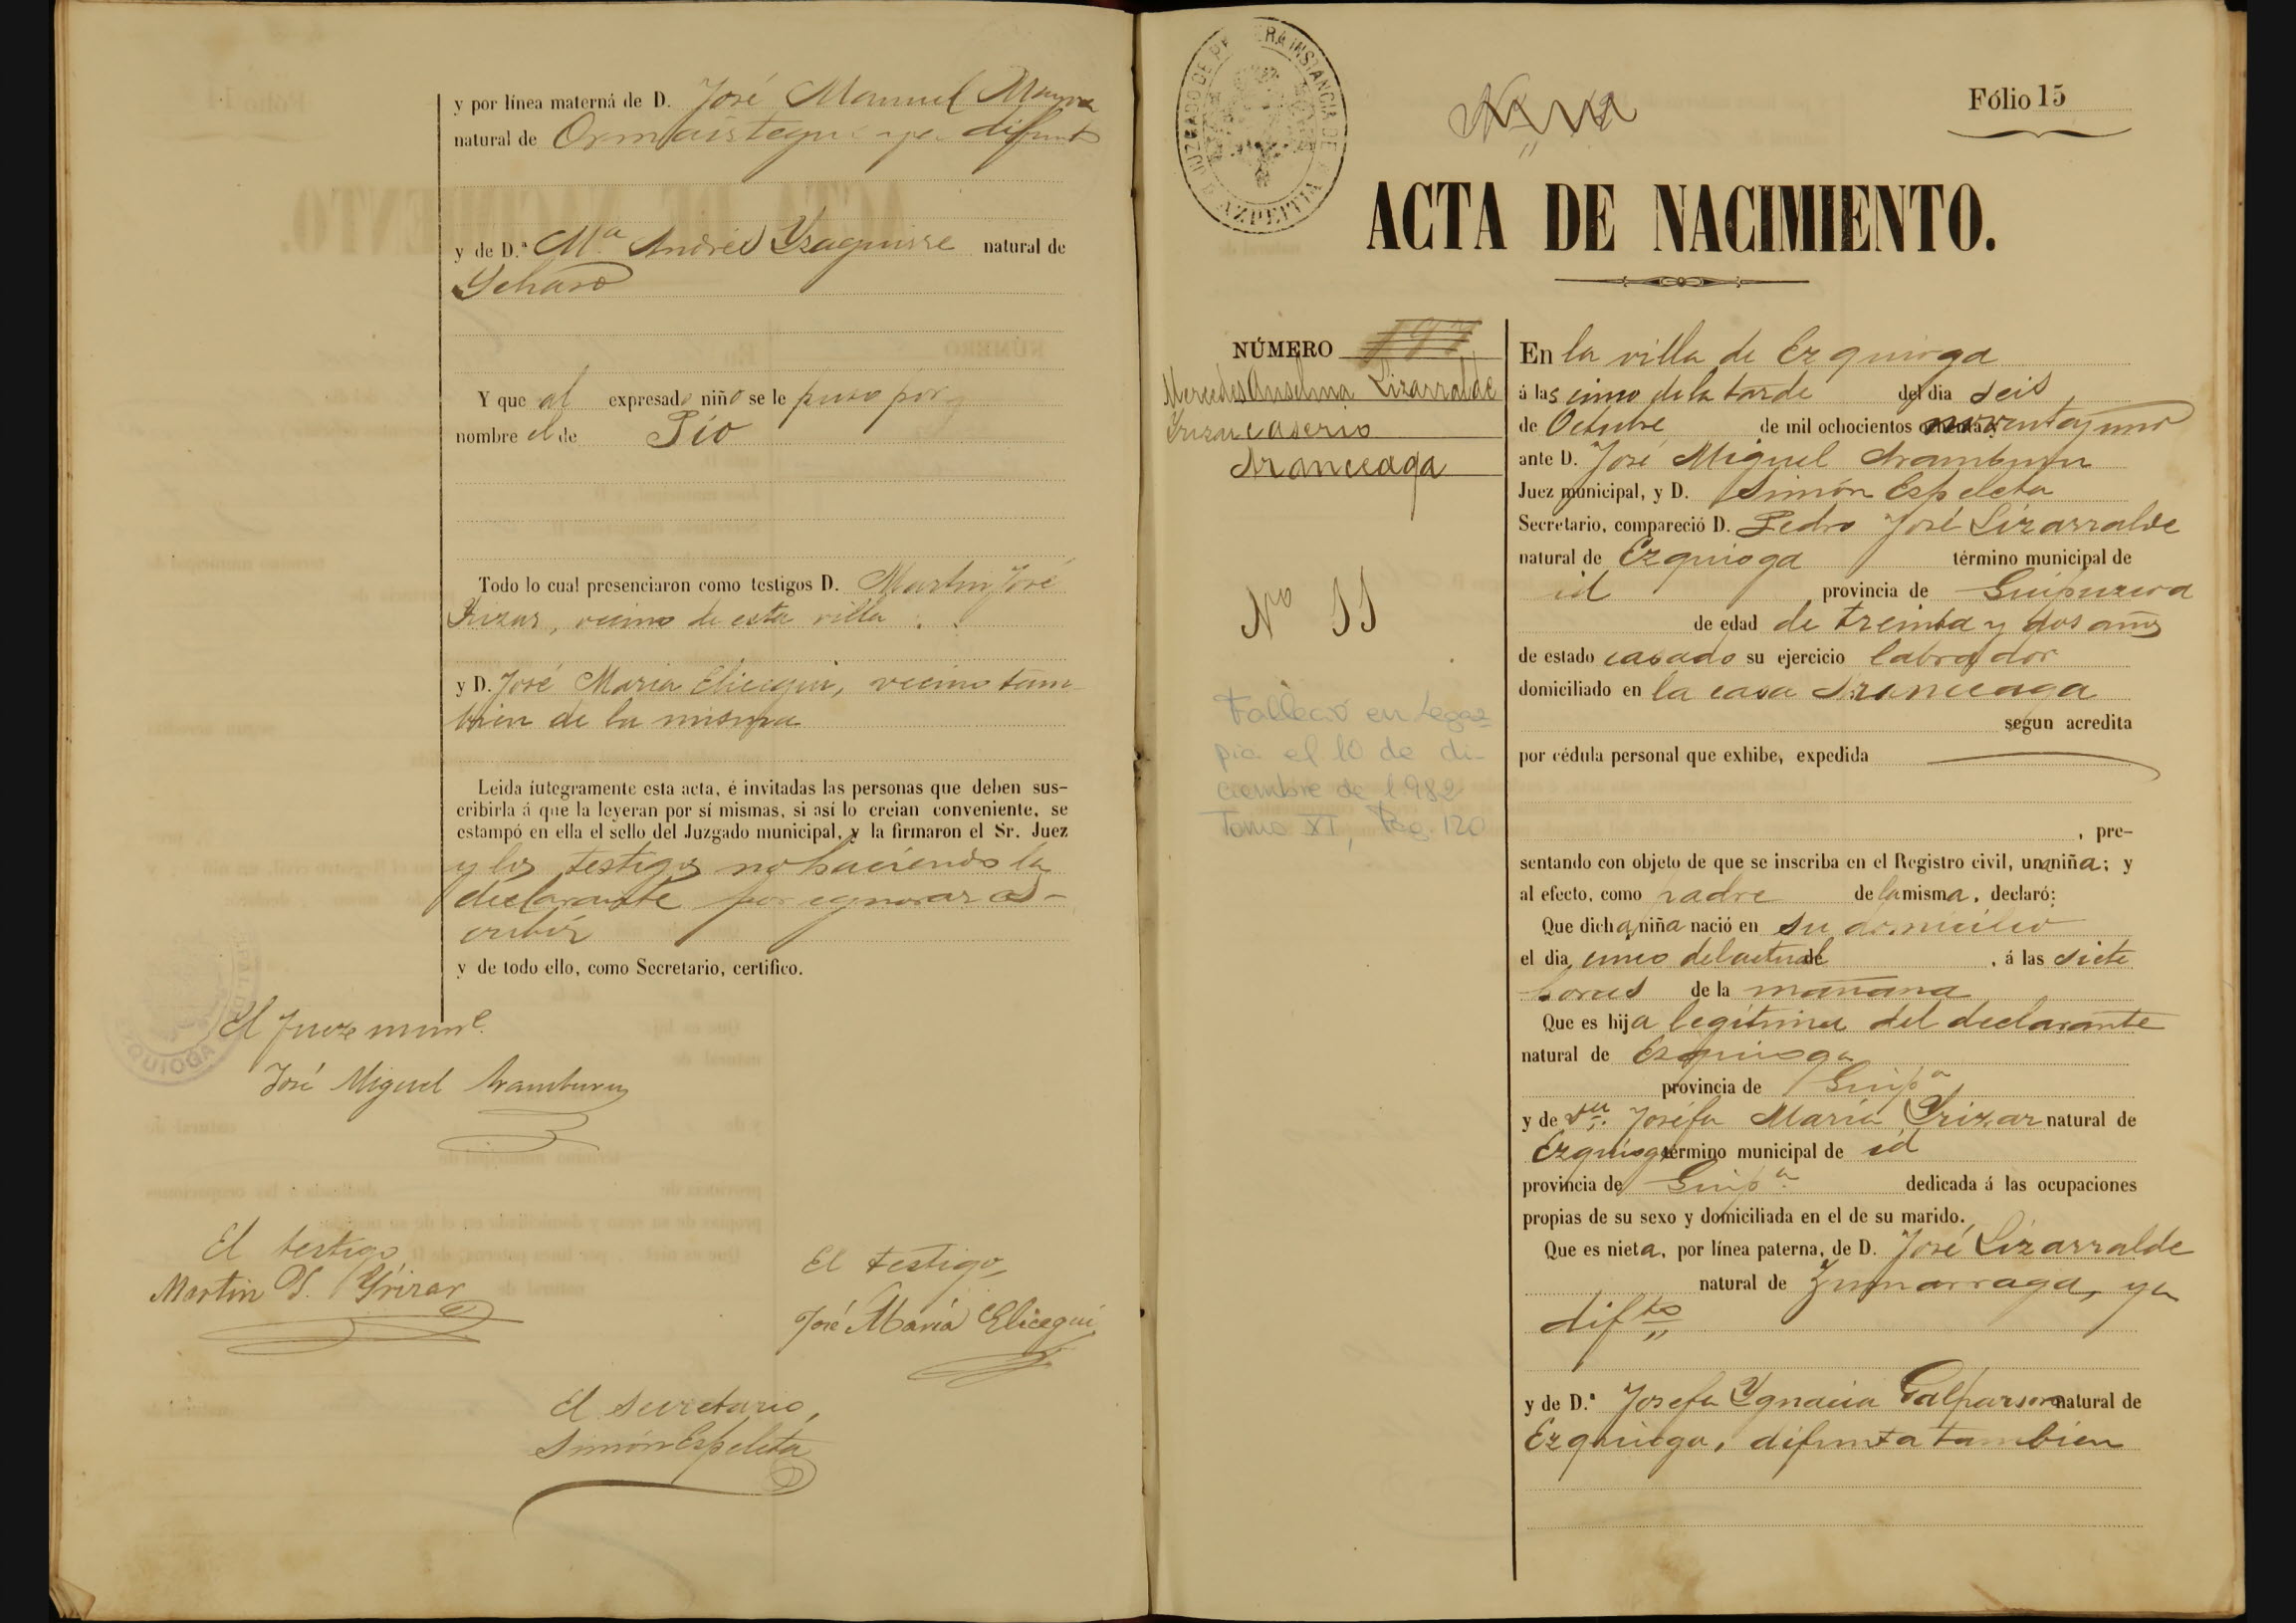 y por línea materna de D. José Manuel
natural de Ormaiztegui ya difunto
y de D.ª M.ª Andrés Yzaguirre natural de
Ychaso
Y que al expresado niño se le puso por
nombre el de Pío
Todo lo cual presenciaron como testigos D. Martin José
Yrizar, vecino de esta villa
y D. José Maria Elicegui, vecino tam
bien de la misma
Leida íntegramente esta acta, é invitadas las personas que deben sus-
cribirla á que la leyeran por sí mismas, si así lo creian conveniente, se
estampó en ella el sello del Juzgado municipal, y la firmaron el Sr. Juez
y los testigos no haciendo la
declarante por ignorar es-
cribir
y de todo ello, como Secretario, certifico.
QUIOGA
El Juez munl.
José Miguel Aramburu
El testigo
Martin J. Yrizar
El testigo
José María Elicegui
El secretario,
Simón Espeleta
JUZGADO DE PRIMERA INSTANCIA DE AZPEITIA
Fólio 15
ACTA DE NACIMIENTO.
NÚMERO 197
Mercedes Anselma Lizarralde
Yrizar caserio
Aranceaga
Nº 11
Falleció en Legaz-
pia el 10 de di-
ciembre de 1.982
Tomo XI, Pag. 120
En la villa de Ezquioga
á las cinco de la tarde del dia seis
de Octubre de mil ochocientos noventa y uno
ante D. José Miguel Aramburu
Juez municipal, y D. Simón Espeleta
Secretario, compareció D. Pedro José Lizarralde
natural de Ezquioga término municipal de
id provincia de Guipuzcoa
de edad de treinta y dos años
de estado casado su ejercicio labrador
domiciliado en la casa Aranceaga
segun acredita
por cédula personal que exhibe, expedida
, pre-
sentando con objeto de que se inscriba en el Registro civil, una niña; y
al efecto, como padre de la misma, declaró:
Que dicha niña nació en su domicilio
el dia cinco del actual, á las siete
horas de la mañana
Que es hija legítima del declarante
natural de Ezquioga
provincia de Guip.ª
y de su Josefa María Yrizar natural de
Ezquioga término municipal de id
provincia de Guip.ª dedicada á las ocupaciones
propias de su sexo y domiciliada en el de su marido.
Que es nieta, por línea paterna, de D. José Lizarralde
natural de Zumarraga, ya
difto
y de D.ª Josefa Ygnacia Galparsoro natural de
Ezquioga, difunta tambien